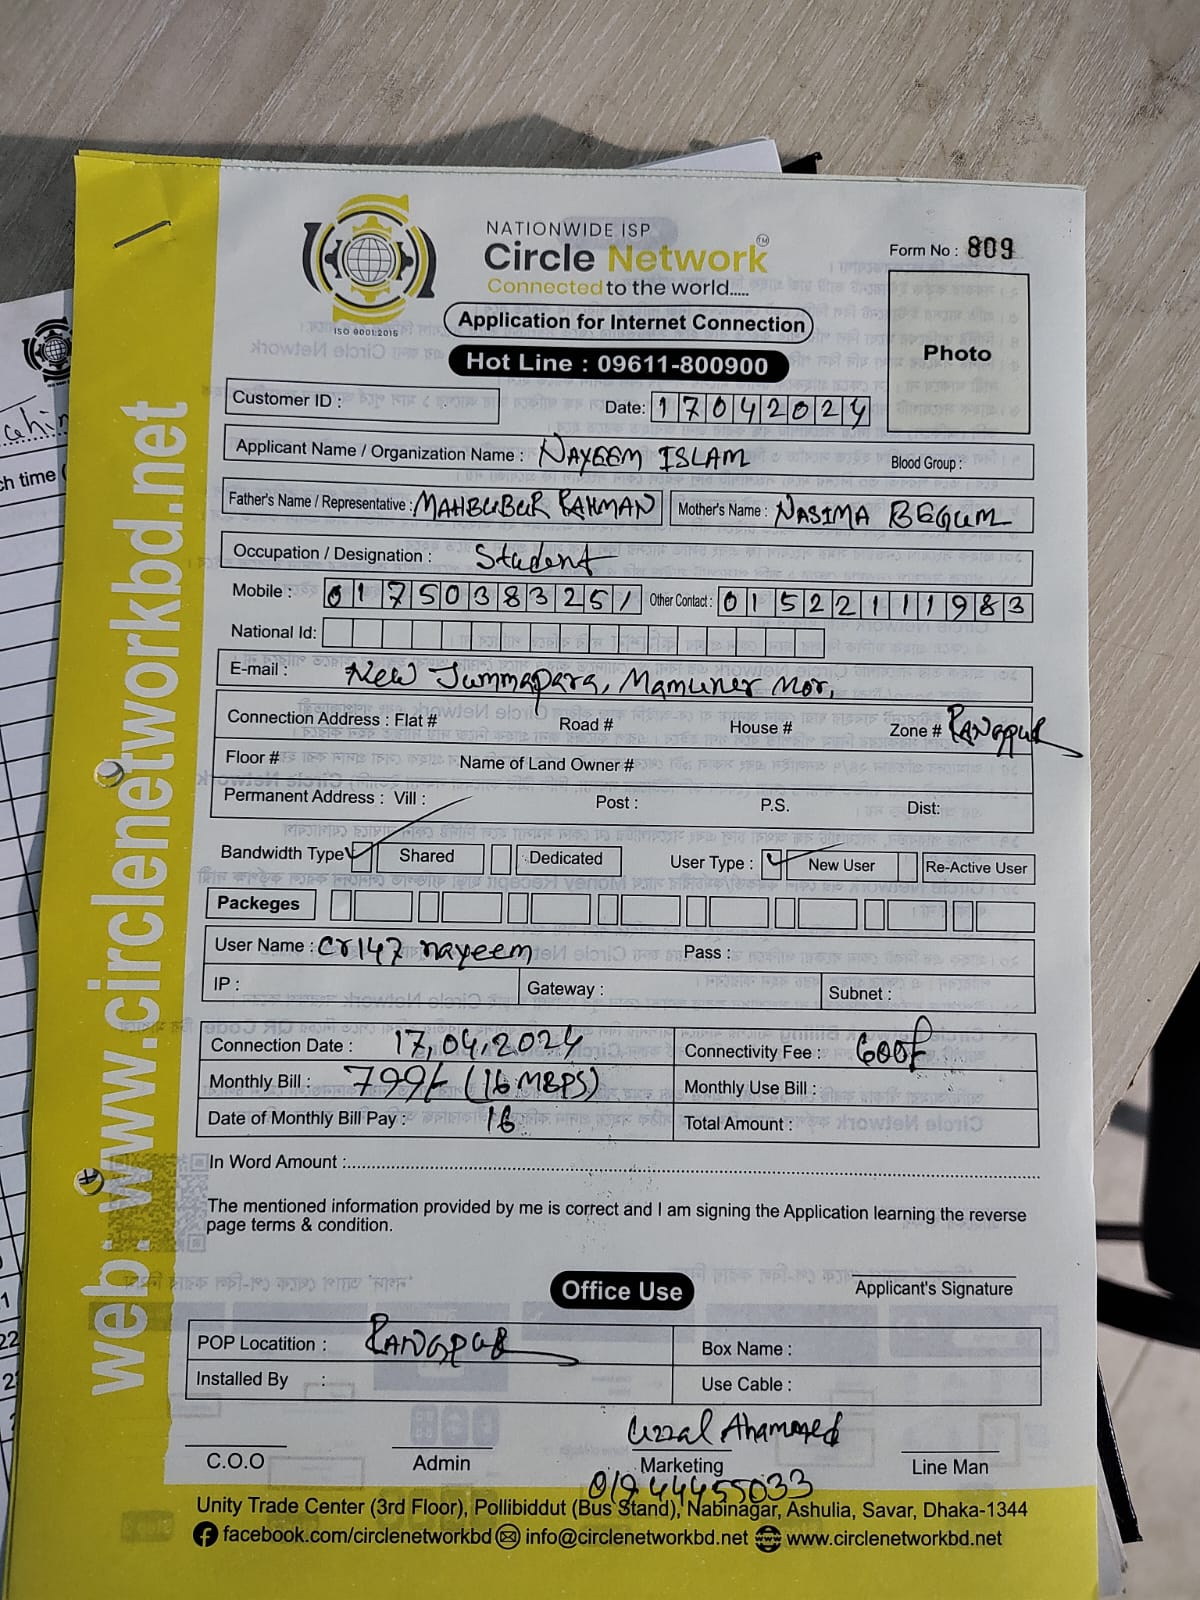 NATIONWIDE ISP
Circle Network TM
Connected to the world.....
ISO 9001:2015
Form No : 809
Application for Internet Connection
Hot Line : 09611-800900
Photo
Customer ID :
Date: 17042024
Applicant Name / Organization Name : NAYEEM ISLAM Blood Group :
Father's Name / Representative : MAHBUBUR RAHMAN Mother's Name : NASIMA BEGUM
Occupation / Designation : Student
Mobile : 01750383251 Other Contact : 01522111983
National Id:
E-mail : New Jummapara, Mamuner Mor,
Connection Address : Flat # Road # House # Zone # RANGPUR
Floor # Name of Land Owner #
Permanent Address : Vill : Post : P.S. Dist:
Bandwidth Type ✓ Shared Dedicated User Type : ✓ New User Re-Active User
Packeges
User Name : cr147 nayeem Pass :
IP : Gateway : Subnet :
Connection Date : 17,04,2024 Connectivity Fee : 600৳
Monthly Bill : 799/- (16 MBPS) Monthly Use Bill :
Date of Monthly Bill Pay : 16 Total Amount :
In Word Amount :
The mentioned information provided by me is correct and I am signing the Application learning the reverse
page terms & condition.
Applicant's Signature
Office Use
POP Locatition : RANGPUR Box Name :
Installed By : Use Cable :
Uzzal Ahammed
C.O.O Admin Marketing Line Man
01944455033
Unity Trade Center (3rd Floor), Pollibiddut (Bus Stand), Nabinagar, Ashulia, Savar, Dhaka-1344
facebook.com/circlenetworkbd info@circlenetworkbd.net www.circlenetworkbd.net
web: www.circlenetworkbd.net